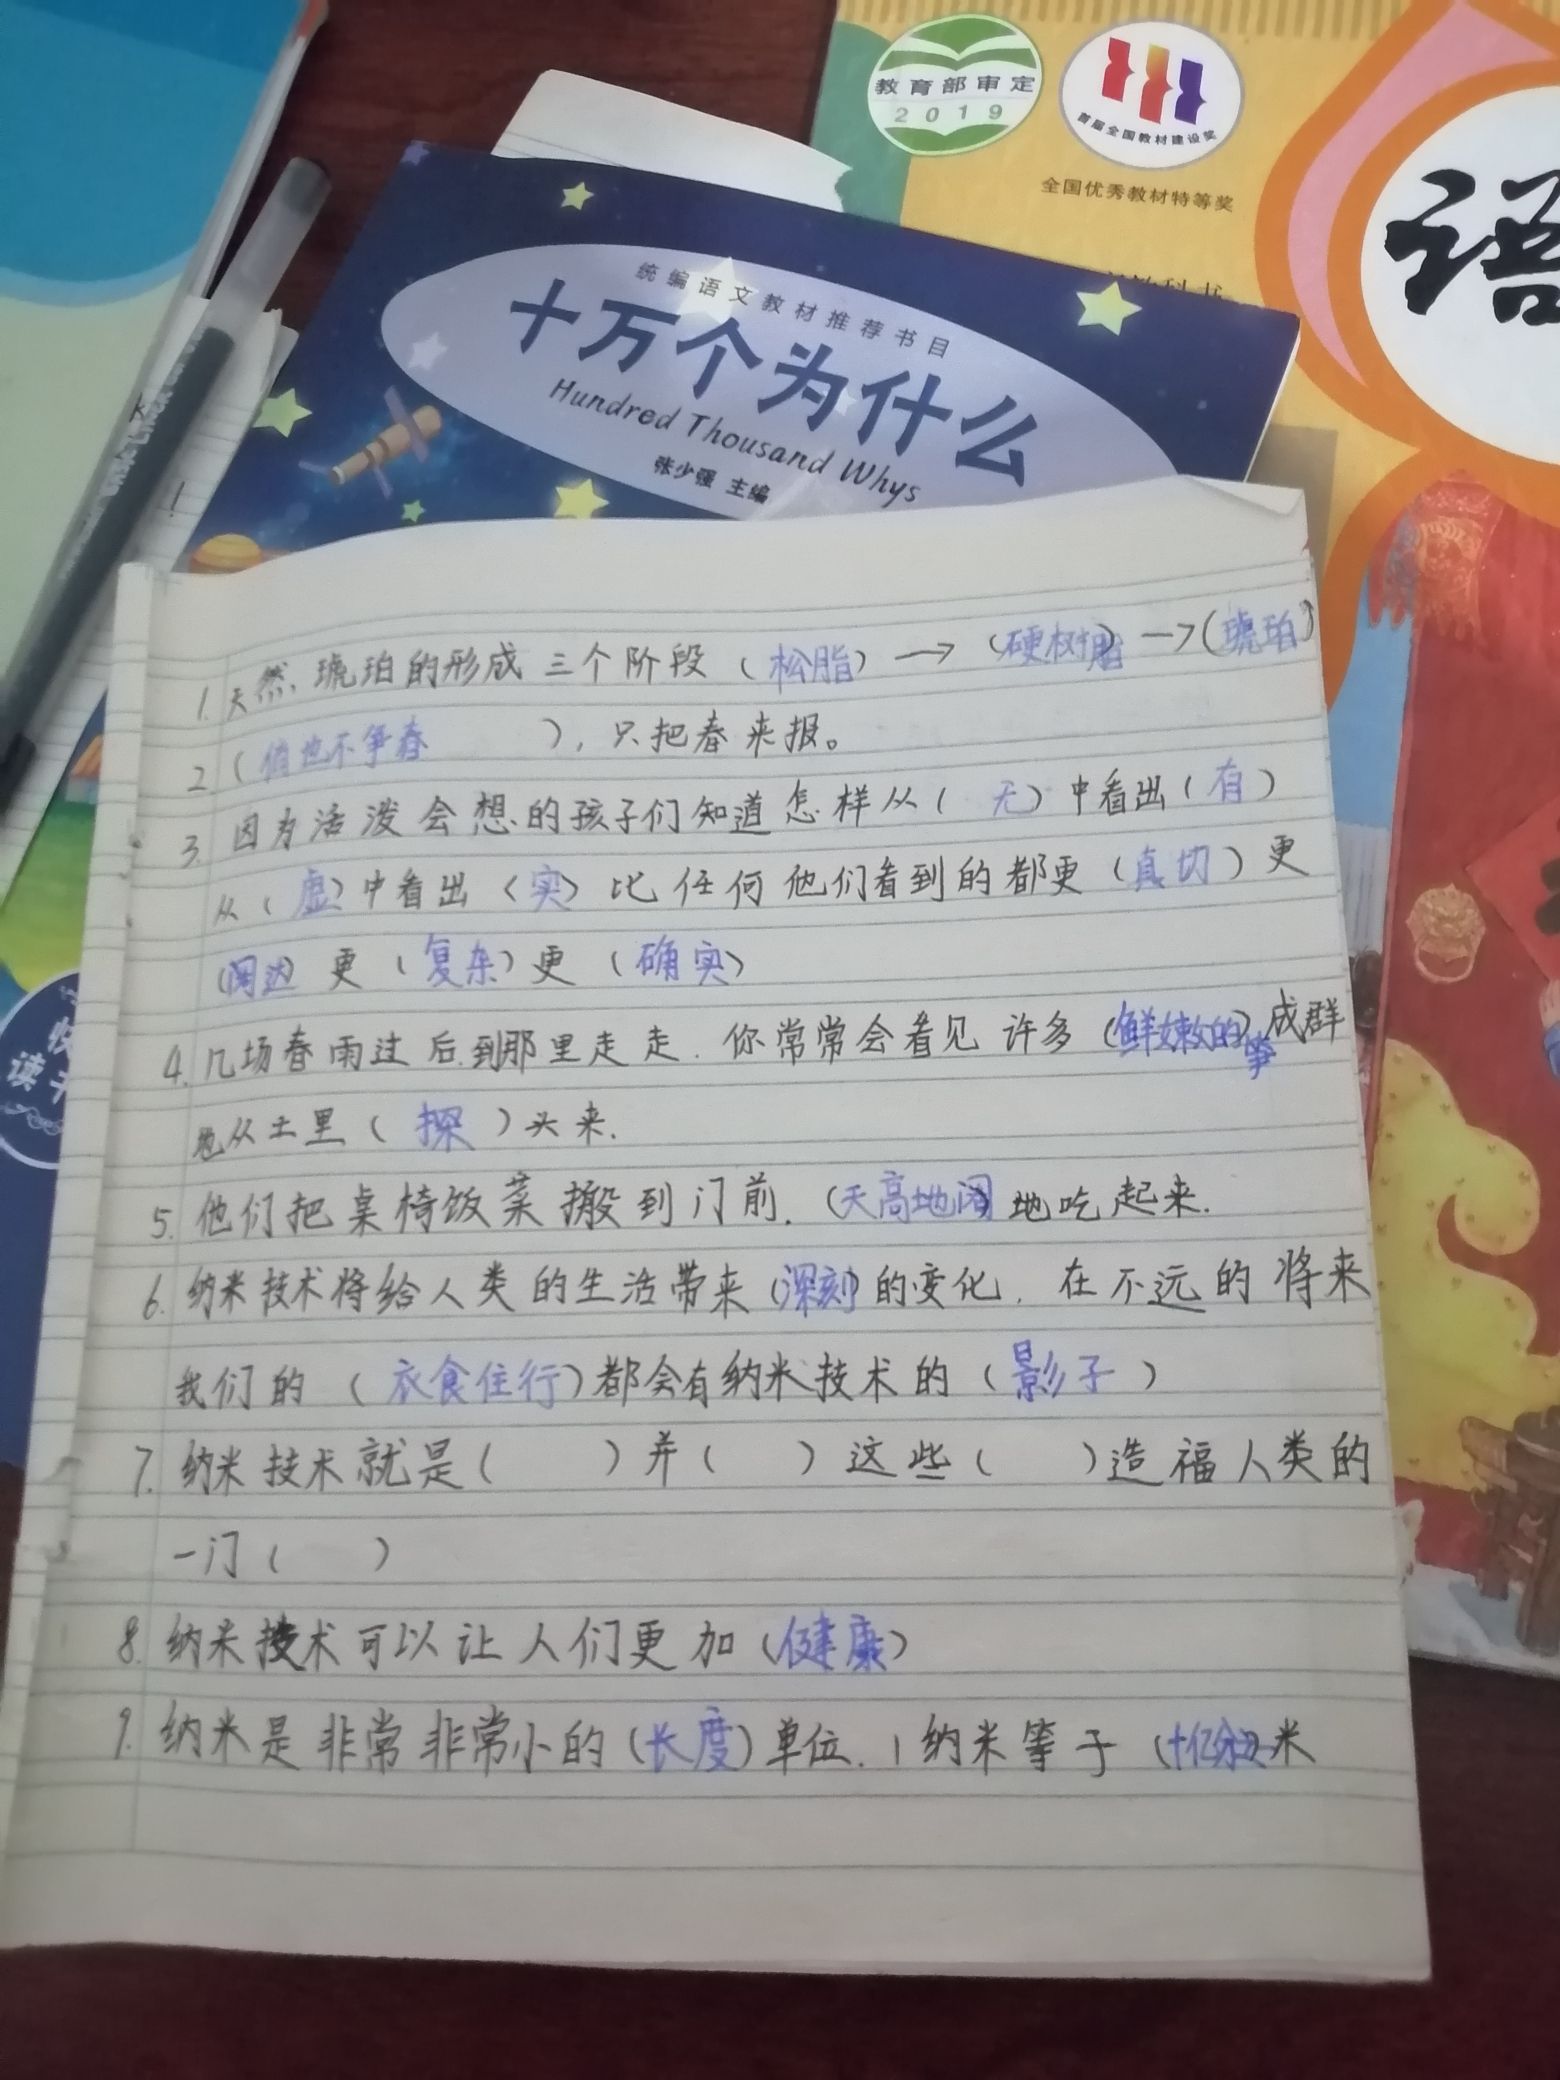 教育部审定
2019
首届全国教材建设奖
全国优秀教材特等奖
语
统编语文教材推荐书目
十万个为什么
Hundred Thousand Whys
张少强 主编
1. 天然琥珀的形成三个阶段（松脂）→（硬树脂）→（琥珀）
2.（俏也不争春），只把春来报。
3. 因为活泼会想的孩子们知道怎样从（无）中看出（有）
从（虚）中看出（实）比任何他们看到的都更（真切）更
（阔边）更（复杂）更（确实）
4. 几场春雨过后.到那里走走.你常常会看见许多（鲜嫩的笋）成群
地从土里（探）头来.
5. 他们把桌椅饭菜搬到门前.（天高地阔）地吃起来.
6. 纳米技术将给人类的生活带来（深刻）的变化.在不远的将来
我们的（衣食住行）都会有纳米技术的（影子）
7. 纳米技术就是（ ）并（ ）这些（ ）造福人类的
一门（ ）
8. 纳米技术可以让人们更加（健康）
9. 纳米是非常非常小的（长度）单位.1纳米等于（十亿分之一）米